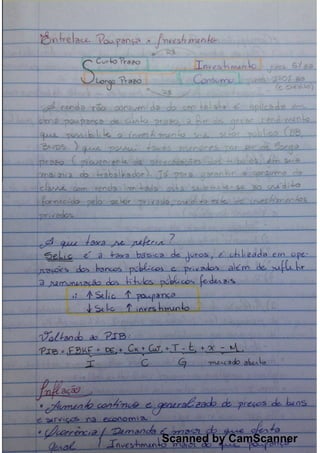 Entrelace Poupança x Investimento
R$
S Curto Prazo Investimento juros 5% aa
Longo Prazo Consumo juros 240% aa
R$
A renda não consumida do capitalista é aplicada em
uma poupança de curto prazo, a fim de gerar rendimento
que possibilite o investimento via setor público (BB,
BNDES) que possui taxas menores por ser de longo
prazo ( dos títulos, em sua
maioria do trabalhador). Já para garantir o consumo da
classe com renda limitada esta submete-se ao crédito
fornecido pelo setor privado, de investimentos
privados.
A que taxa se refere?
Selic é a taxa básica de juros, é utilizada em ope-
rações dos bancos públicos e privados além de refletir
a remuneração dos títulos públicos federais
∴ ↑ Selic ↑ poupança
↓ Selic ↑ investimento
Voltando ao PIB:
PIB = FBKF + DE, + Ca + CG, + T - t, + x - M.
I C G mercado aberto
Inflação
• Aumento contínuo e generalizado de preços de bens
e serviços na economia.
• Ocorrência / Demanda é maior do que oferta
Geral / Investimento maior do que poupança
Scanned by CamScanner